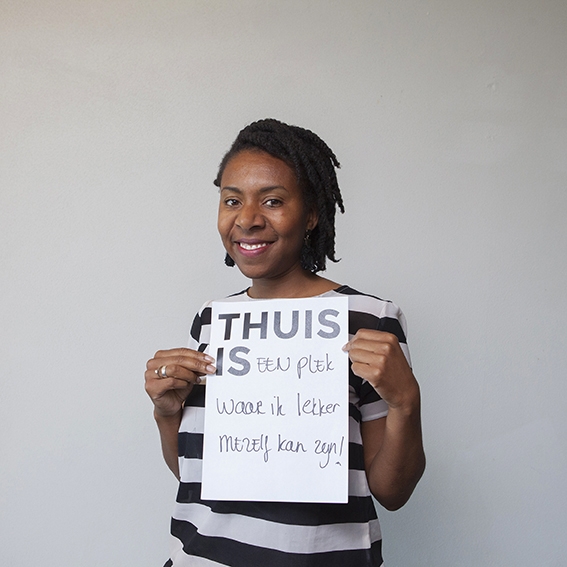 THUIS
IS EEN PLEK
waar ik lekker
MEZELF kan zijn!